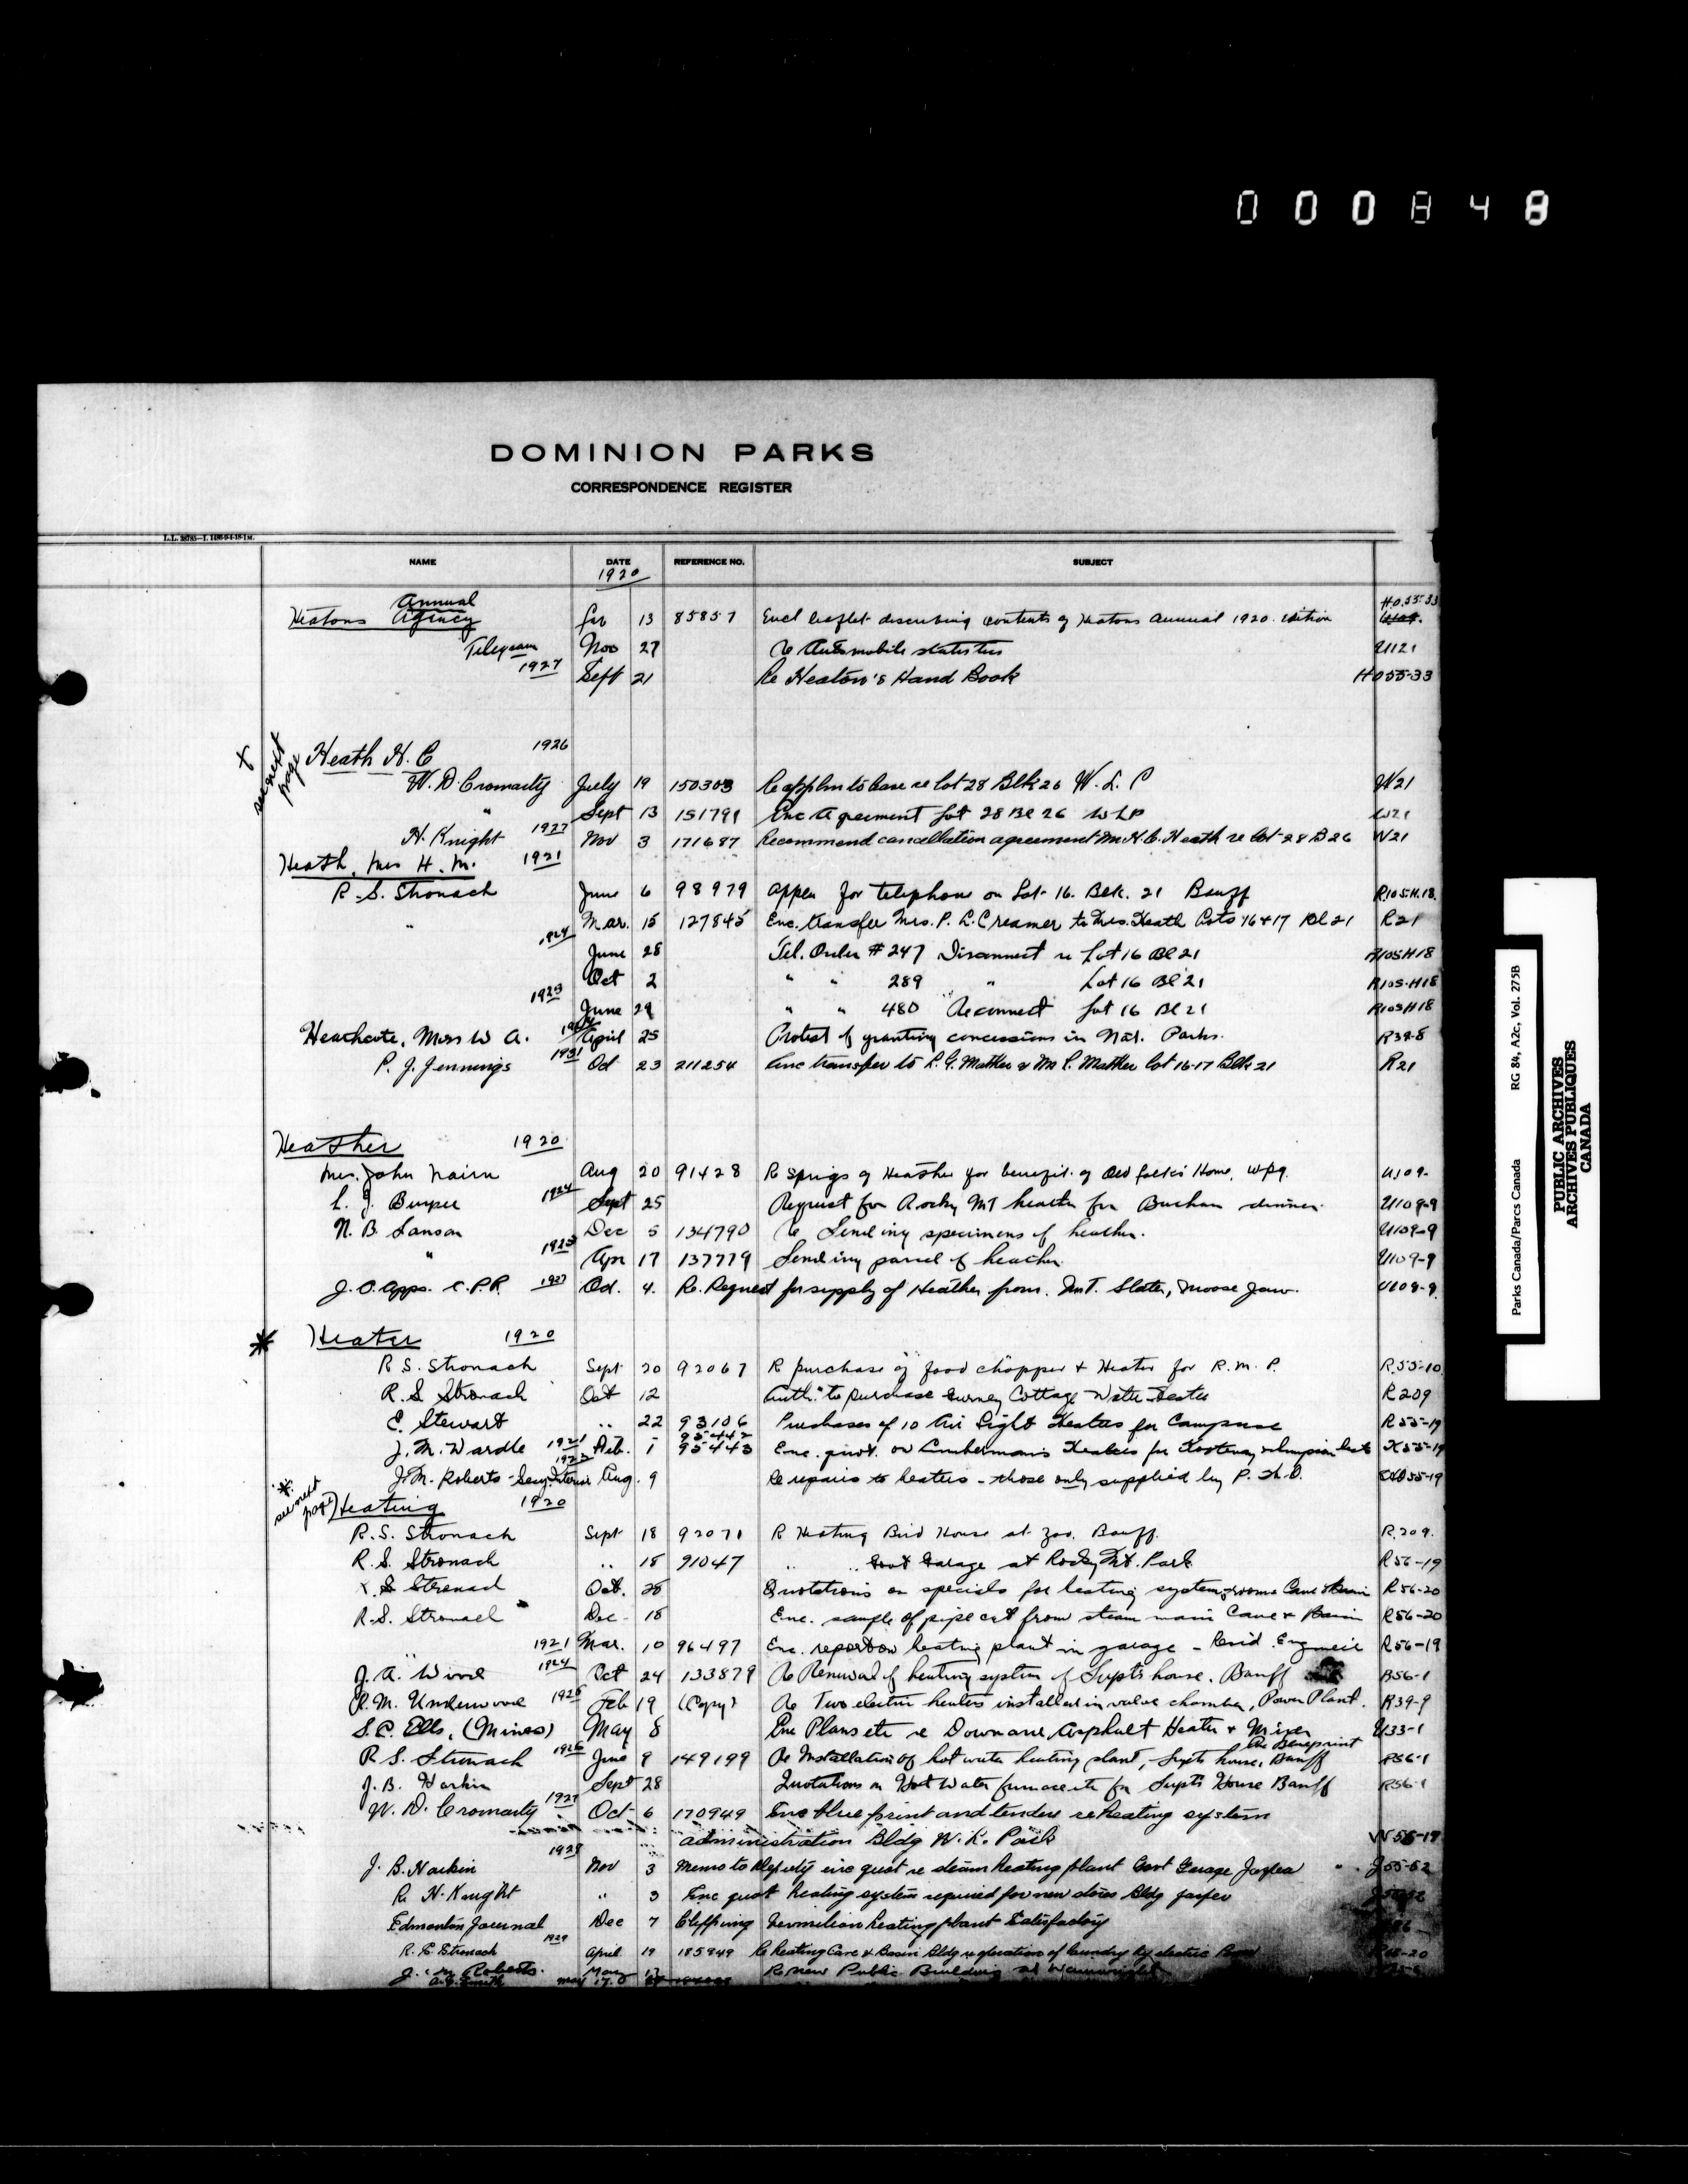 000848
DOMINION PARKS
CORRESPONDENCE REGISTER
NAME DATE REFERENCE NO. SUBJECT
1920
Annual H.O.55-33
Heatons Agency 13 85857 Encl leaflet describing contents of Heatons Annual 1920 edition
Telegram Nov 27 Re Automobile statistics U121
1927
Sept 21 Re Heaton's Hand Book HO55-33
X see next page
Heath H. C 1926
W. D. Cromarty July 19 150303 Re appln to lease re lot 28 Blk 26 W. L. P W21
" Sept 13 151791 Enc Agreement Lot 28 Bl 26 W L P W21
H. Knight 1927 Nov 3 171687 Recommend cancellation agreement Mr H. C. Heath re lot 28 B 26 W21
Heath, Mrs H. M. 1921
R. S. Stronach June 6 98979 Appln for telephone on Lot 16. Blk. 21 Banff R105.H.18.
" Mar. 15 127845 Enc. transfer Mrs. P. L. Creamer to Mrs. Heath Lots 16+17 Bl 21 R21
1924
June 28 Tel. Order # 247 Disconnect re Lot 16 Bl 21 R105H18
Oct 2 " " 289 " Lot 16 Bl 21 R105-H18
1925
June 29 " " 480 Reconnect Lot 16 Bl 21 R105H18
Heathcote, W A. April 25 Protest of granting concessions in Nat. Parks.
P. J. Jennings 1931 Oct 23 211254 Enc transfer to L. G. Mather & Mr P. Mather lot 16-17 Blk 21 R21
Heather 1920
Mrs. John Nairn Aug 20 91428 R Sprigs of Heather for benefit of Old Folks Home, Wpg. U109.
L. J. Burpee 1924 Sept 25 Request for Rocky Mt heather for Buchan dinner. U109-9
N. B. Sanson Dec 5 134790 Re Sending specimens of heather. U109-9
" 1925 Apr 17 137779 Sending parcel of heather U109-9
J. O. Apps. C.P.R. 1927 Oct. 4. Re. Request for supply of Heather from. Slater, Moose Jaw. U109-9.
* Heater 1920
R S. Stronach Sept 20 92067 R purchase of food chopper + Heater for R. M. P. R.55-10
R. S Stronach Oct 12 Auth. to purchase Gurney Cottage Water Heater R209
E. Stewart " 22 93106 Purchases of 10 Air Tight Heaters for Campuse R55-19
95442
J. M. Wardle 1921 Feb. 1 95443 Enc. on Lumberman's Heaters for Kootenay
1922
J. M. Roberts - Secy. Interior Aug. 9 Re repairs to heaters - those only supplied by P. W. D.
* see next page
Heating 1920
R. S. Stronach Sept 18 92071 R Heating Bird House at Zoo. Banff. R.209.
R. S. Stronach " 18 91047 " " Govt Garage at Rocky Mt. Park R56-19
S Stronach Oct. 26 Quotations on specials for heating system, rooms Cave & Basin R56-20
R. S. Stronach " Dec. 18 Enc. sample of pipe cut from steam main Cave & Basin R56-20
" 1921 Mar. 10 96497 Enc. report on heating plant in garage - Resid. Engineer R56-19
J. A. Wood 1924 Oct 24 133879 Re Renewal of heating system of Supt's house. Banff B56-1
R. M. Underwood 1925 Feb 19 (Copy) Re Two electric heaters installed in valve chamber, Power Plant. R39-9
S. C. Ells, (Mines) May 8 Enc Plans etc re Asphalt Heater + Mixer U33-1
Re Blueprint
R. S. Stronach 1926 June 9 149199 Re Installation of hot water heating plant, - Supts house, Banff R56-1
J. B. Harkin Sept 28 Quotations on Hot Water furnace etc for Supt's House Banff R56-1
W. D. Cromarty 1927 Oct 6 170949 Enc blue print and tenders re heating system
administration Bldg W. L. Park
1928
J. B. Harkin Nov 3 Memo to Deputy enc quot re steam heating plant Govt Garage Jasper J55-52
R. H. Knight " 3 Enc quot heating system required for new stores Bldg Jasper
Edmonton Journal Dec 7 Clipping Vermilion heating plant Satisfactory
1929
R. S. Stronach April 19 185949 Re heating Cave & Basin Bldg re operation of laundry by electric
J. M. Roberts. May 17 Re New Public Building at Wainwright
PUBLIC ARCHIVES
ARCHIVES PUBLIQUES
CANADA
Parks Canada/Parcs Canada RG 84, A2c, Vol. 275B